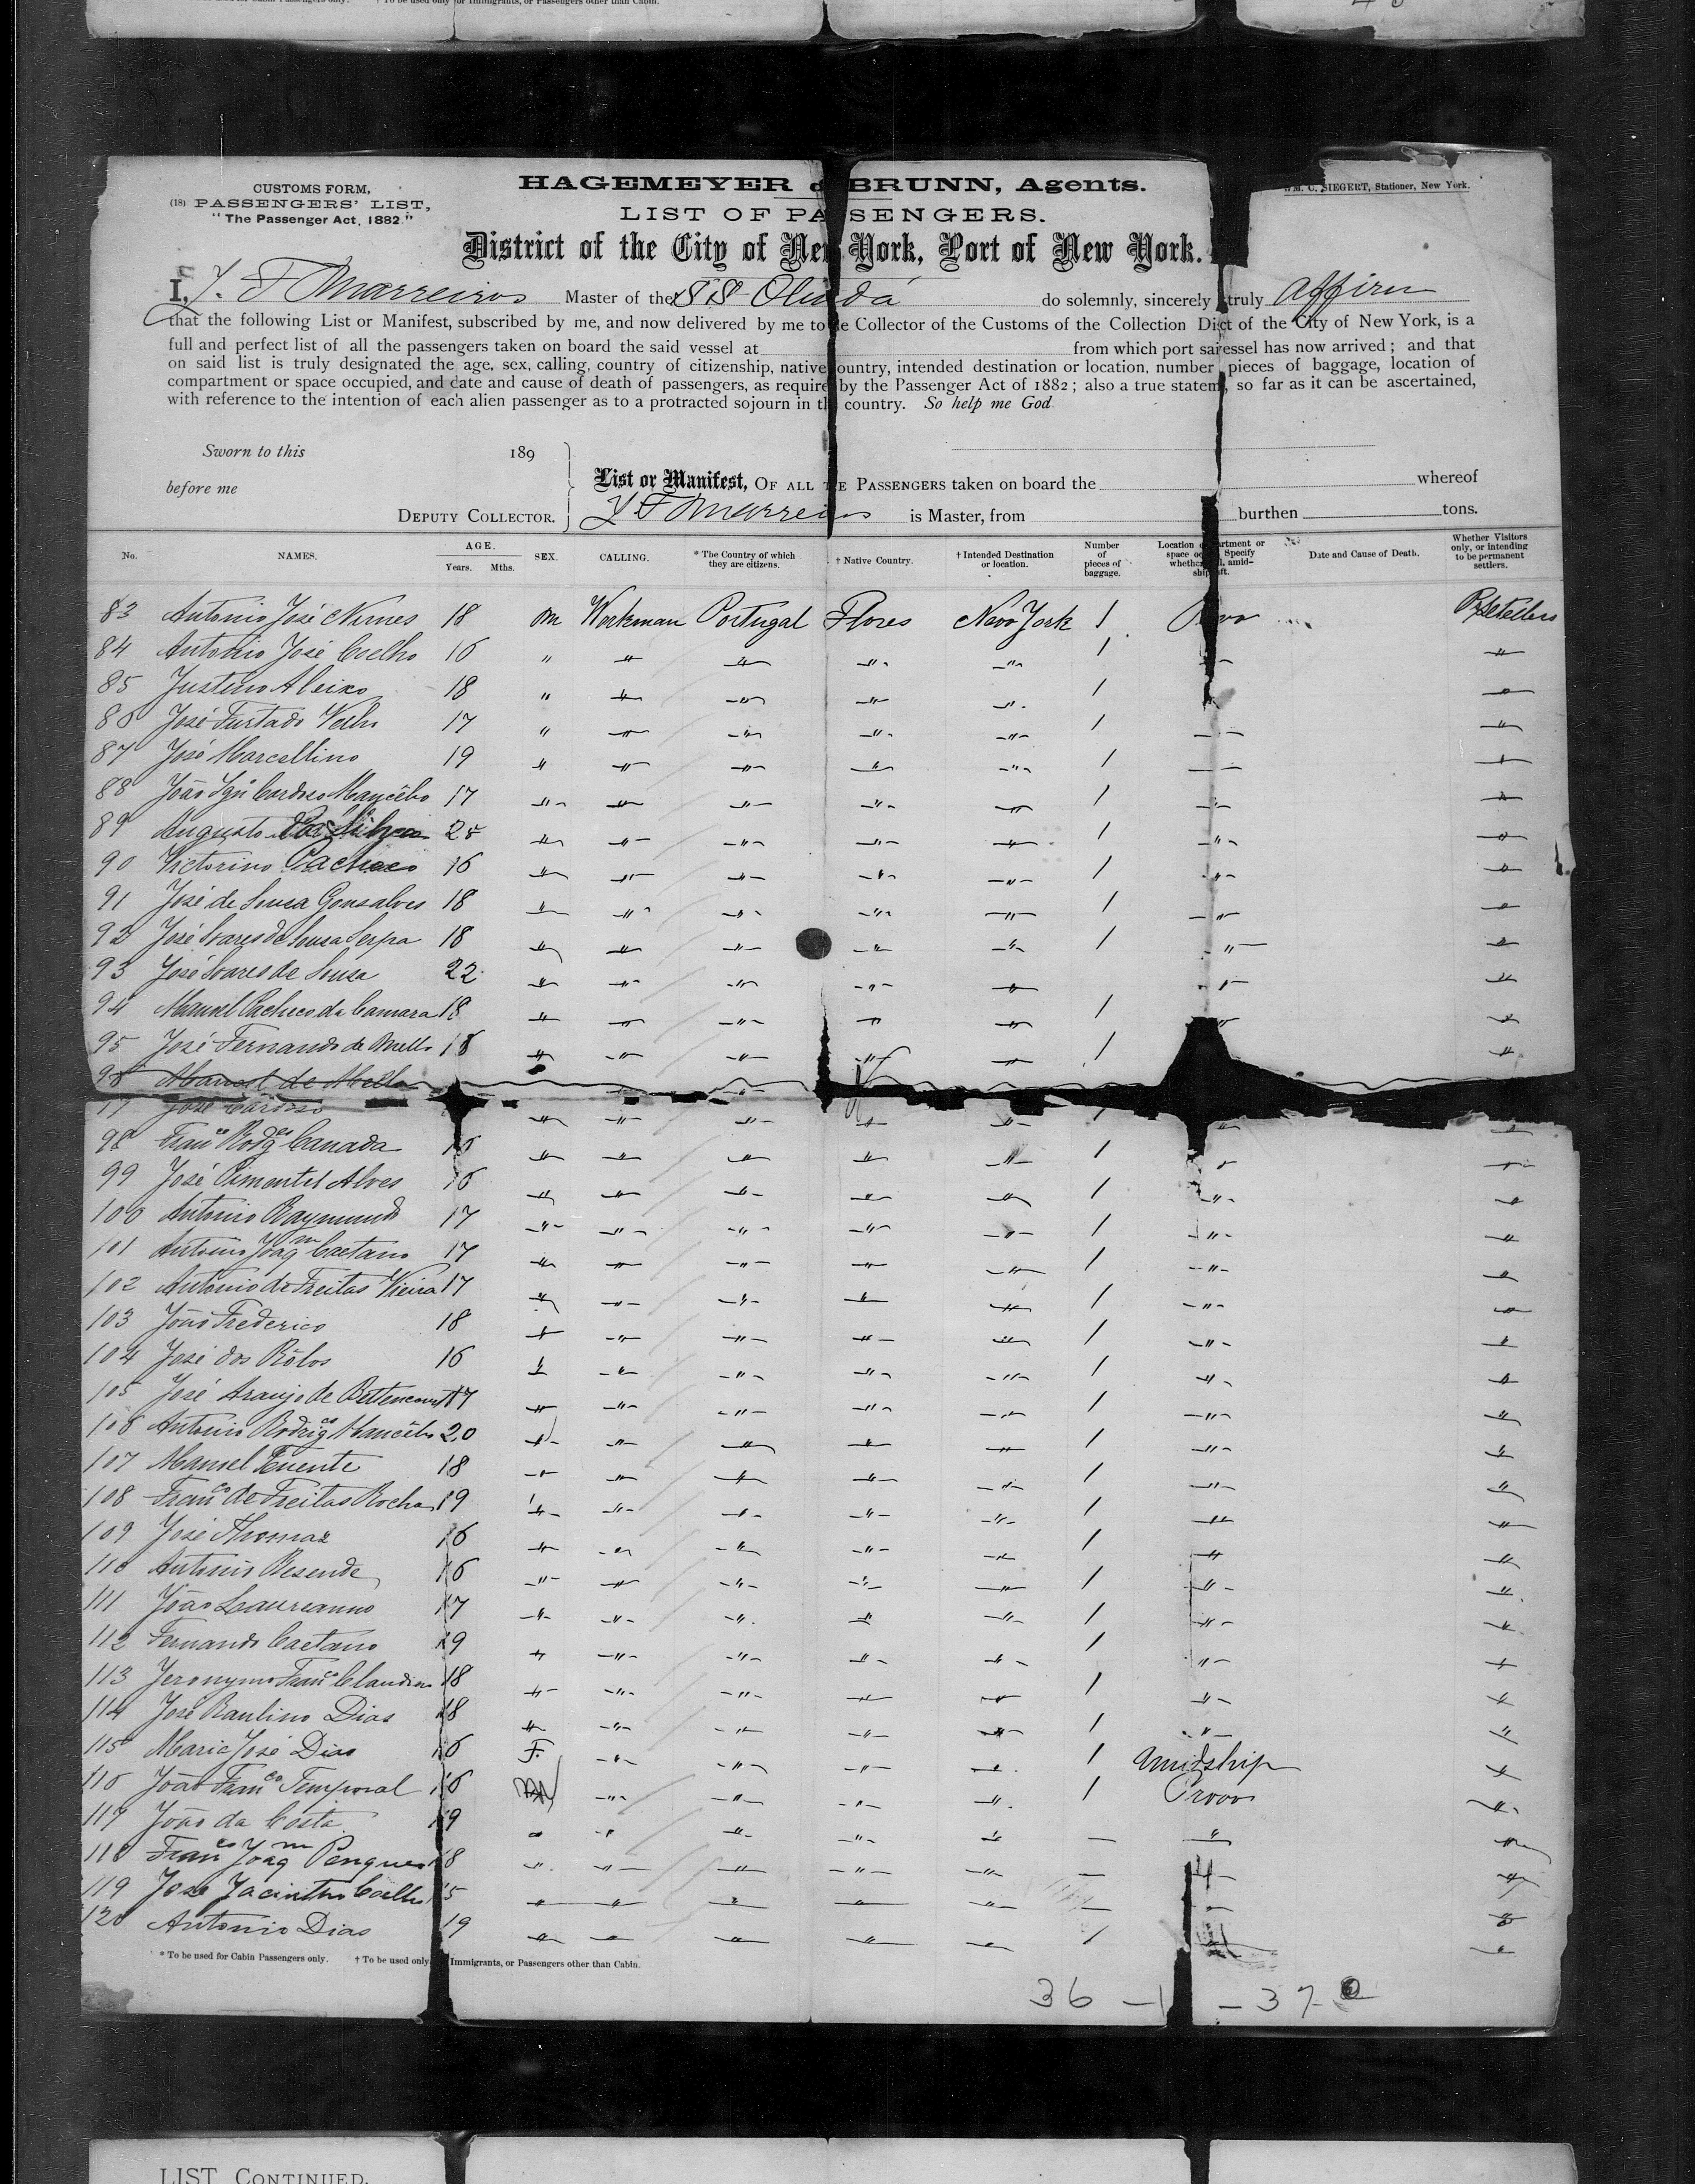 CUSTOMS FORM,
(18) PASSENGERS' LIST,
"The Passenger Act, 1882."
HAGEMEYER & BRUNN, Agents.
WM. C. SIEGERT, Stationer, New York.
LIST OF PASSENGERS.
District of the City of New York, Port of New York.
I, J. F Marreiros Master of the SS Olinda do solemnly, sincerely truly affirm
that the following List or Manifest, subscribed by me, and now delivered by me to the Collector of the Customs of the Collection Dict of the City of New York, is a
full and perfect list of all the passengers taken on board the said vessel at from which port sai essel has now arrived; and that
on said list is truly designated the age, sex, calling, country of citizenship, native country, intended destination or location, number pieces of baggage, location of
compartment or space occupied, and date and cause of death of passengers, as require by the Passenger Act of 1882; also a true statem, so far as it can be ascertained,
with reference to the intention of each alien passenger as to a protracted sojourn in th country. So help me God
Sworn to this 189
before me
DEPUTY COLLECTOR.
List or Manifest, OF ALL THE PASSENGERS taken on board the whereof
J F Marreiros is Master, from burthen tons.
No. NAMES. AGE. Years. Mths. SEX. CALLING. * The Country of which they are citizens. † Native Country. † Intended Destination or location. Number of pieces of baggage. Location Date and Cause of Death. Whether Visitors only, or intending to be permanent settlers.
83 Antonio José Nunes 18 m Workman Portugal Flores New York 1
84 Antonio José Coelho 16 " " " " " 1 " "
85 Justino Aleixo 18 " " " " " 1 "
86 José Furtado 17 " " " " " 1 "
87 José Marcellino 19 " " " " " 1 "
88 João Cardoso Mancêbo 17 " " " " " 1 " "
89 Augusto da Silva 25 " " " " " 1 " "
90 Victorino Pacheco 16 " " " " " 1 " "
91 José de Sousa Gonsalves 18 " " " " " 1 " "
92 José Soares de Sousa Serpa 18 " " " " " 1 " "
93 José Soares de Sousa 22 " " " " " " "
94 Manuel Pacheco da Camara 18 " " " " " 1 " "
95 José Fernando de Mello 18 " " " " " 1 "
96 Manuel de Mello
97 José Cardoso " " " " " 1 " "
98 Franco Rodges Canada 16 " " " " " 1 " "
99 José Pimentel Alves 16 " " " " " 1 " "
100 Antonio Raymundo 17 " " " " " 1 " "
101 Antonio Joaqm Caetano 17 " " " " " 1 " "
102 Antonio de Freitas Vieira 17 " " " " " 1 " "
103 João Frederico 18 " " " " " 1 " "
104 José dos Rôlos 16 " " " " " 1 " "
105 José Araujo de Bettencourt 17 " " " " " 1 " "
106 Antonio Rodriges Mancêbo 20 " " " " " 1 " "
107 Manuel 18 " " " " " 1 " "
108 Franco de Freitas Rocha 19 " " " " " 1 " "
109 José Thomaz 16 " " " " " 1 " "
110 Antonio Resende 16 " " " " " 1 " "
111 João Laureanno 17 " " " " " 1 " "
112 Fernando Caetano 19 " " " " " 1 " "
113 Jeronymo Franco 18 " " " " " 1 " "
114 José Raulino Dias 18 " " " " " 1 " "
115 Maria José Dias 16 F. " " " " 1 Amidship "
116 João Franco Temporal 16 M " " " " 1 Prow "
117 João da Costa 19 " " " " " — " "
118 Franco Joaqm 18 " " " " " — " "
119 José Jacintho Coelho 15 " " " " " — " "
120 Antonio Dias 19 " " " " " 1 "
* To be used for Cabin Passengers only. † To be used only Immigrants, or Passengers other than Cabin.
36 — 1 — 37
LIST CONTINUED.